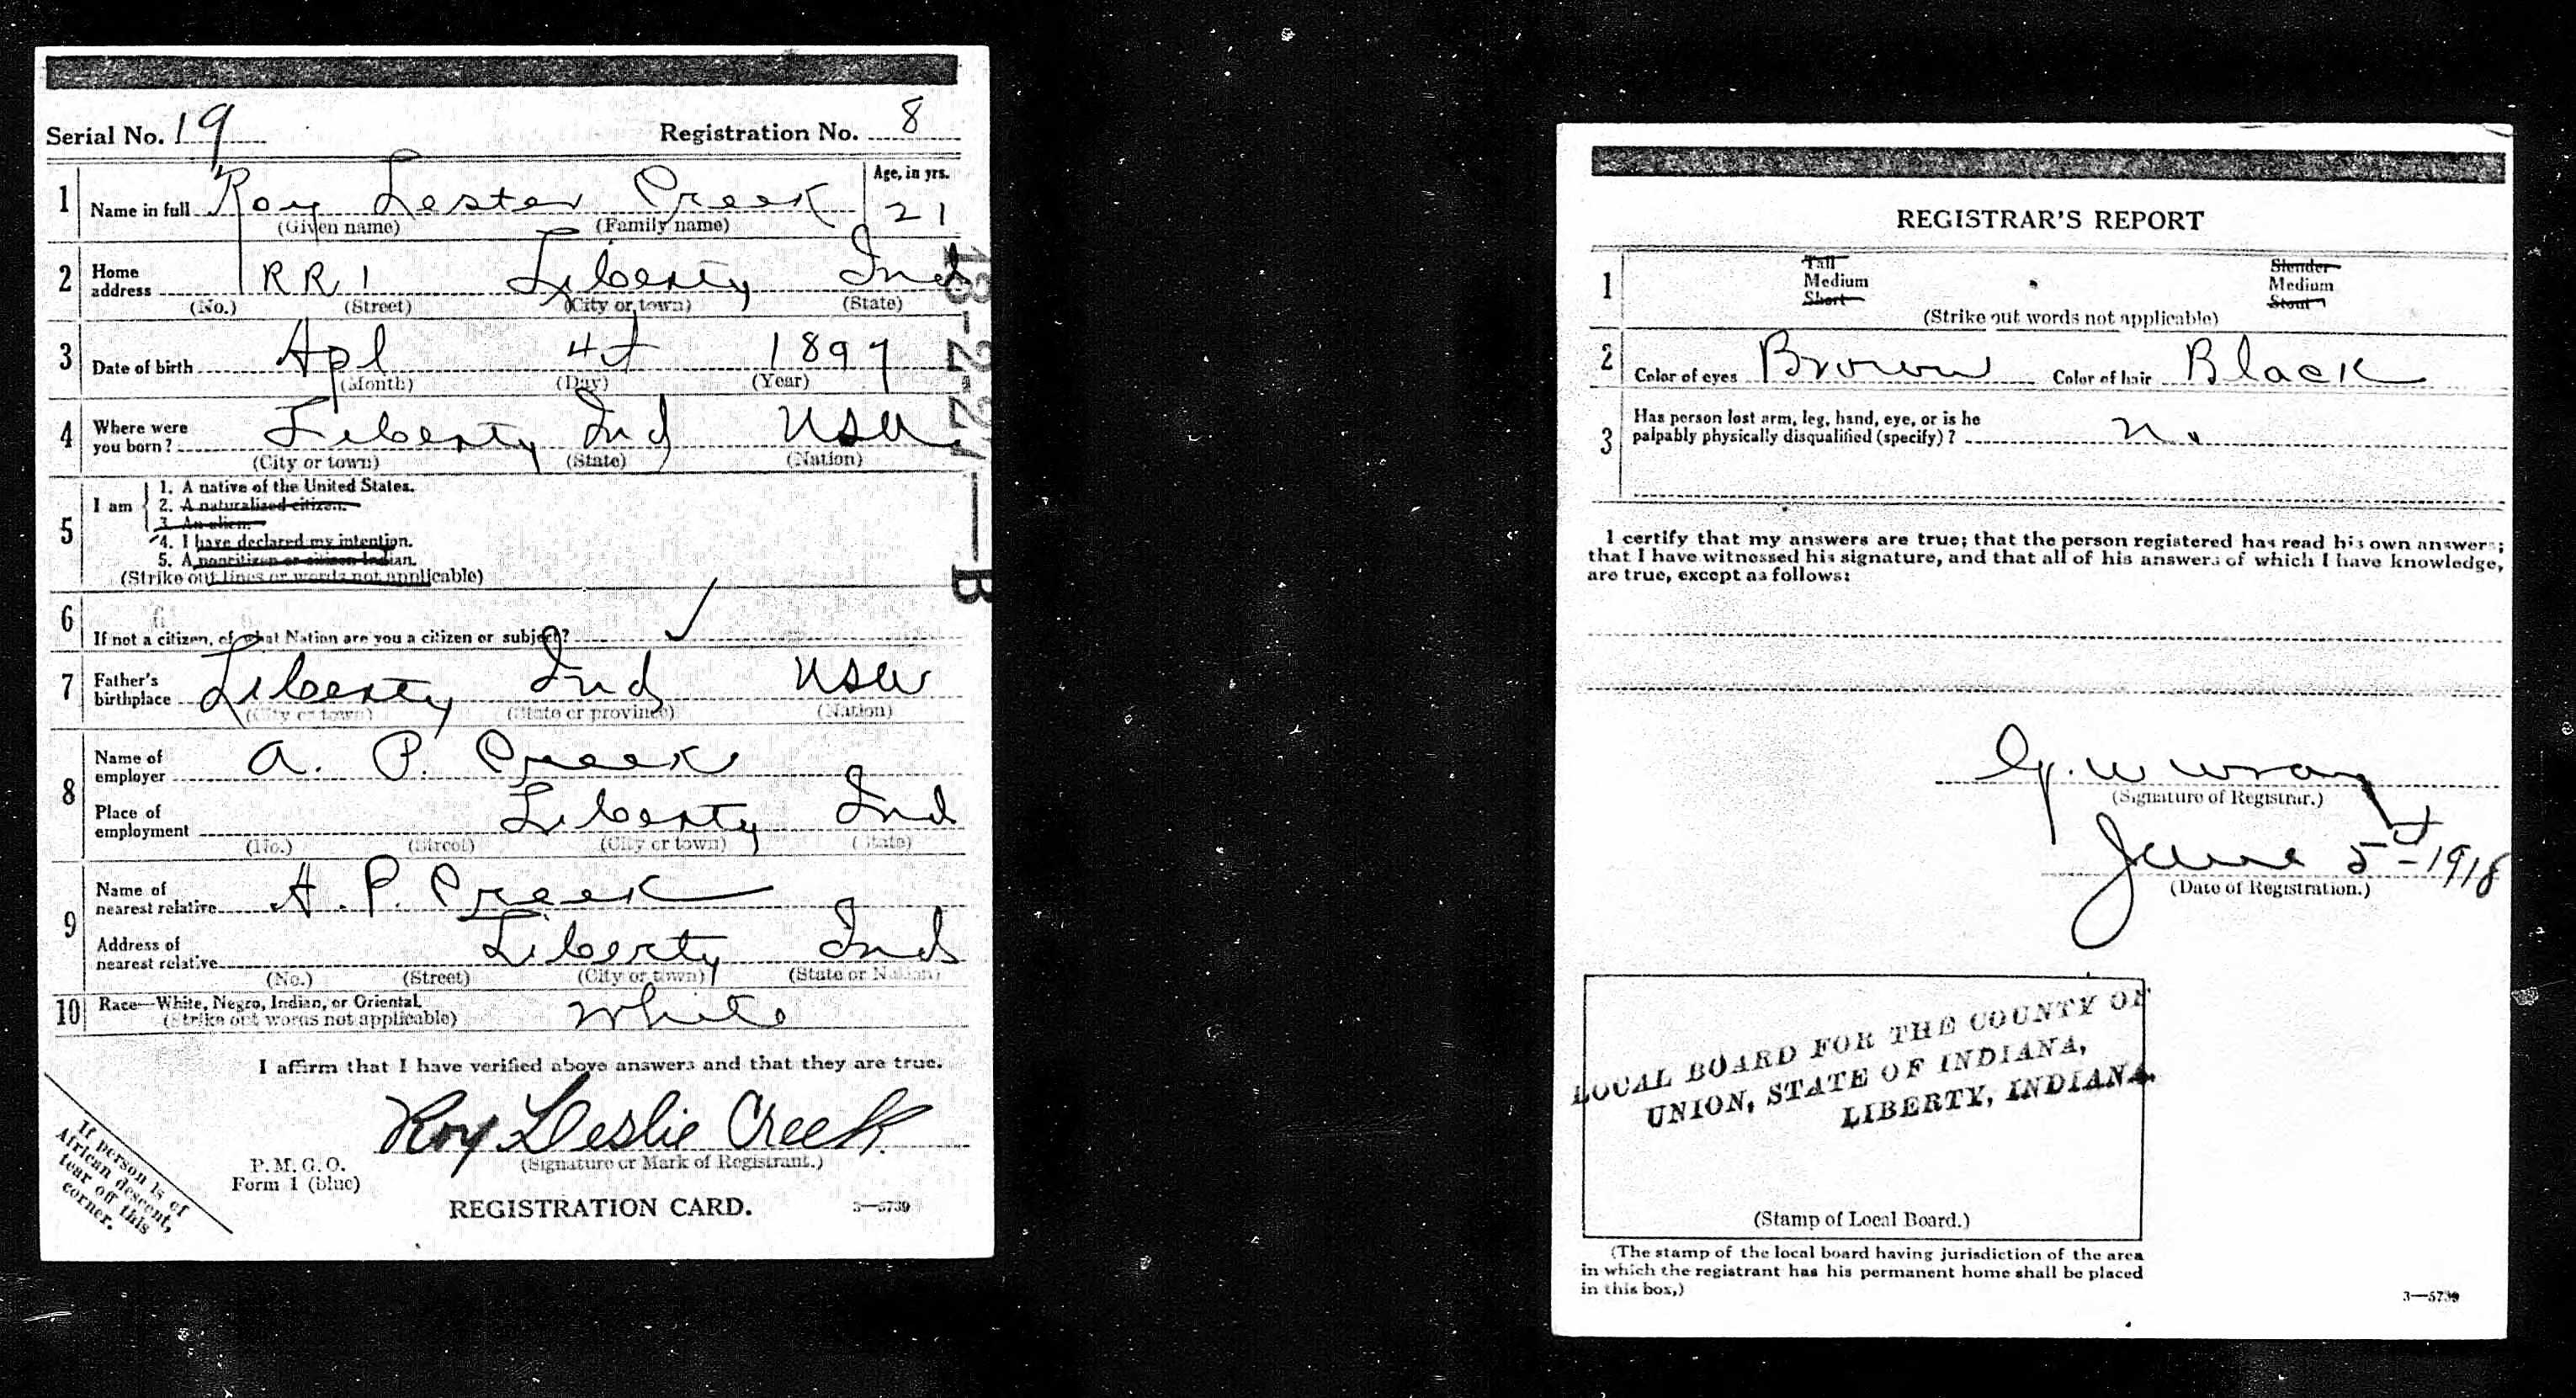 Serial No. 19 Registration No. 8
1 Name in full Roy Lester Creek Age, in yrs. 21
(Given name) (Family name)
2 Home address RR 1 Liberty Ind
(No.) (Street) (City or town) (State)
3 Date of birth Apl 4t 1897
(Month) (Day) (Year)
4 Where were you born? Liberty Ind USA
(City or town) (State) (Nation)
5 I am 1. A native of the United States.
2. A naturalized citizen.
3. An alien.
4. I have declared my intention.
5. A noncitizen or citizen Indian.
(Strike out lines or words not applicable)
6 If not a citizen, of what Nation are you a citizen or subject? ✓
7 Father's birthplace Liberty Ind USA
(City or town) (State or province) (Nation)
8 Name of employer A. P. Creek
Place of employment Liberty Ind
(No.) (Street) (City or town) (State)
9 Name of nearest relative A. P. Creek
Address of nearest relative Liberty Ind
(No.) (Street) (City or town) (State or Nation)
10 Race—White, Negro, Indian, or Oriental. White
(Strike out words not applicable)
I affirm that I have verified above answers and that they are true.
Roy Leslie Creek
(Signature or Mark of Registrant.)
P. M. G. O.
Form 1 (blue)
REGISTRATION CARD. 3—5739
If person is of
African descent,
tear off this
corner.
13-2-21—B
REGISTRAR'S REPORT
1 Tall Slender
Medium Medium
Short Stout
(Strike out words not applicable)
2 Color of eyes Brown Color of hair Black
3 Has person lost arm, leg, hand, eye, or is he
palpably physically disqualified (specify)? No
I certify that my answers are true; that the person registered has read his own answers;
that I have witnessed his signature, and that all of his answers of which I have knowledge,
are true, except as follows:
G. W Wray
(Signature of Registrar.)
June 5t-1918
(Date of Registration.)
LOCAL BOARD FOR THE COUNTY OF
UNION, STATE OF INDIANA,
LIBERTY, INDIANA.
(Stamp of Local Board.)
(The stamp of the local board having jurisdiction of the area
in which the registrant has his permanent home shall be placed
in this box.)
3—5739